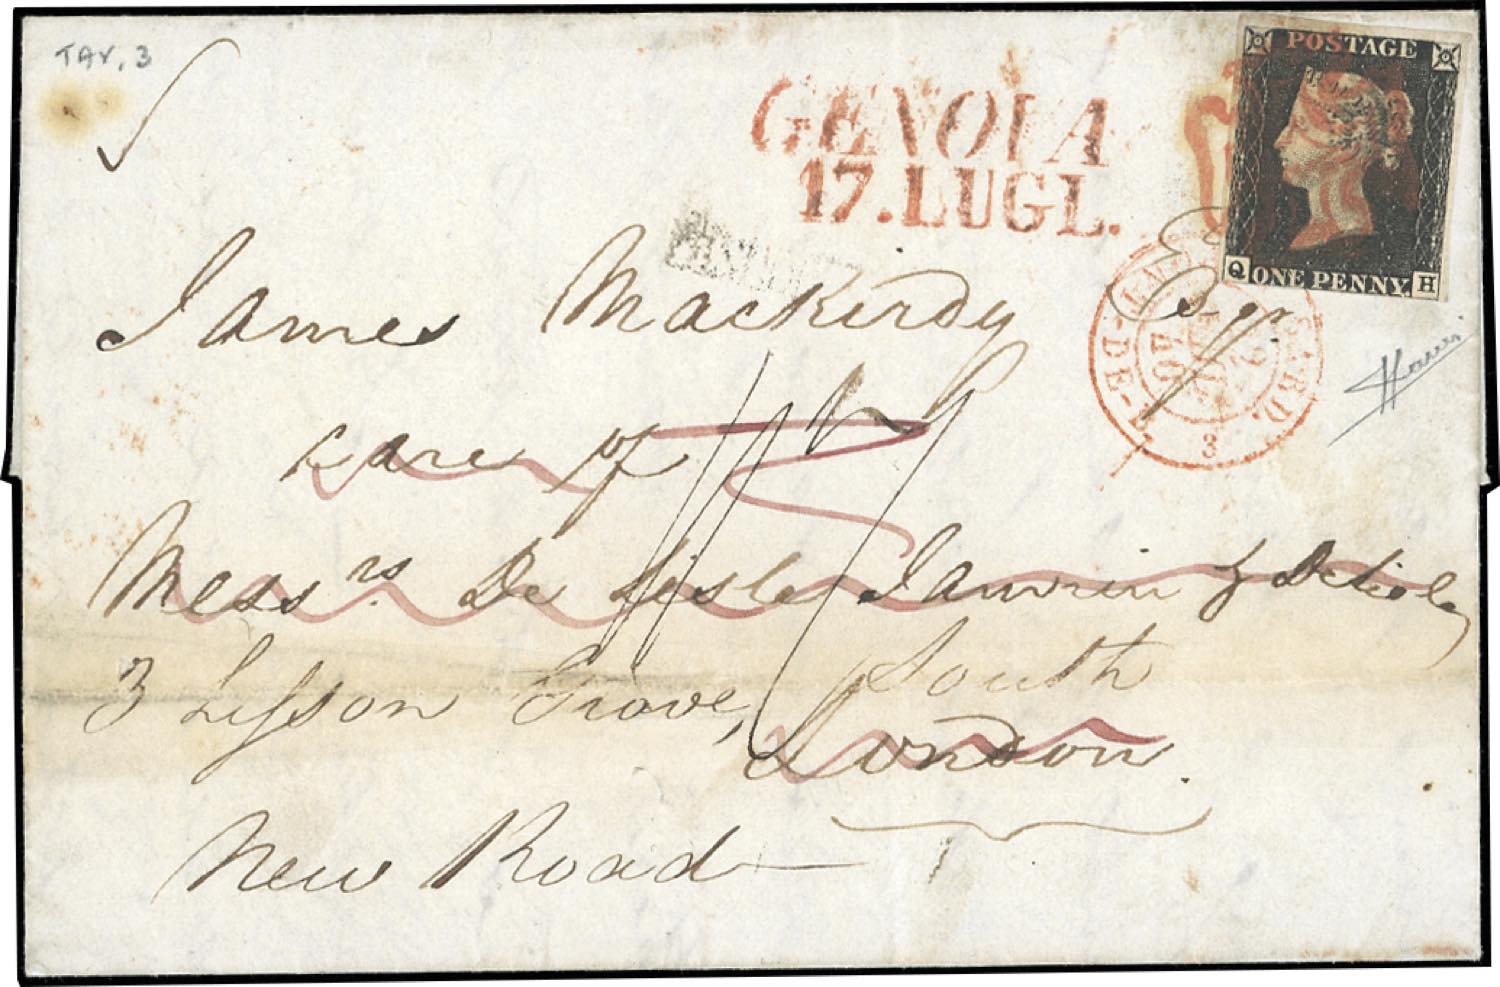 TAV. 3
GENOVA
17. LUGL.
POSTAGE
Q ONE PENNY. H
James Mackirdy Esqr
3
40
DE
SARD.
care of
Messrs De Lisle Janvrin & De Lisle
3 Lisson Grove, South
London.
New Road